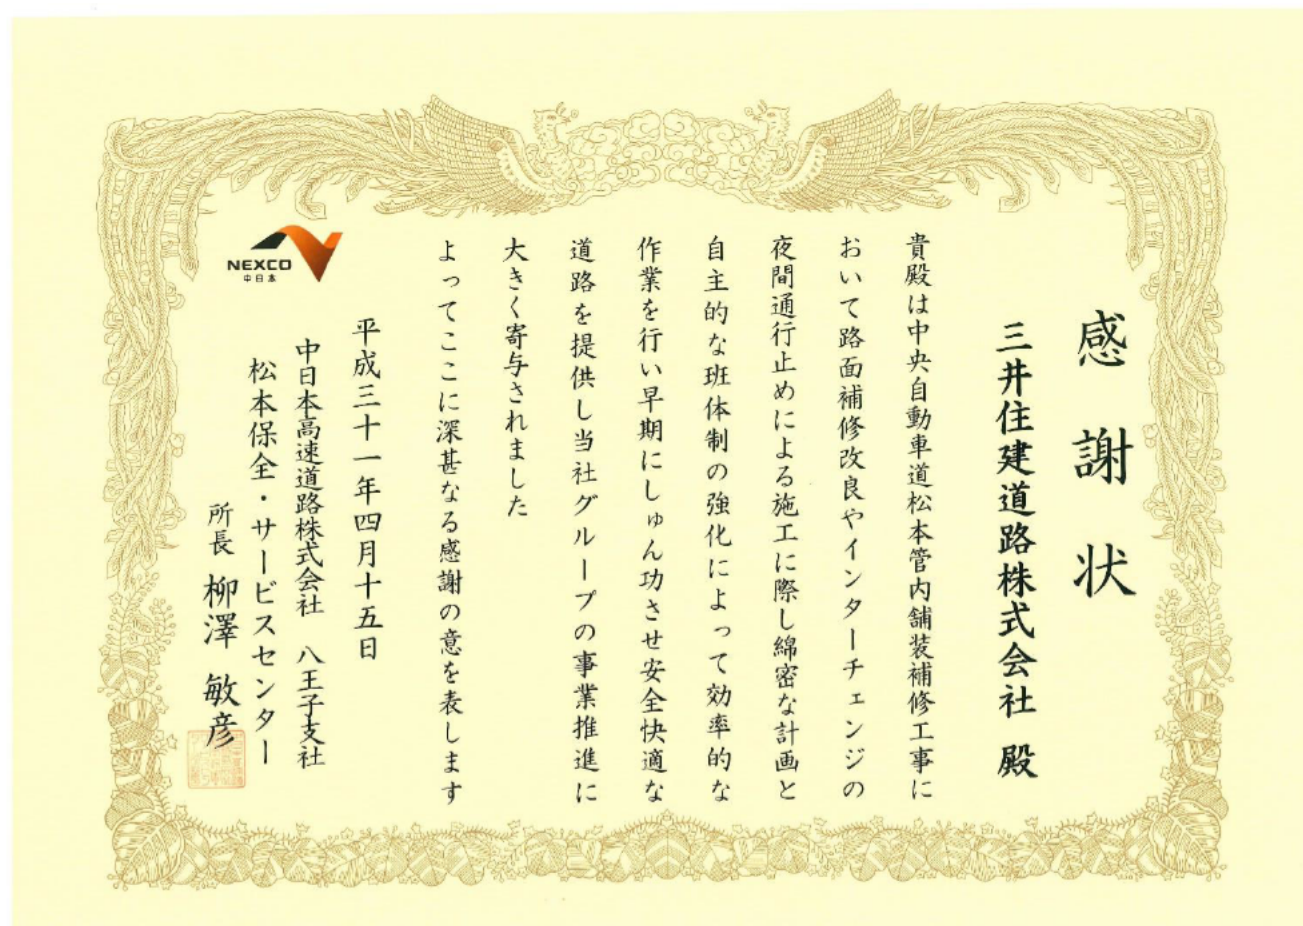 感謝状
三井住建道路株式会社 殿
貴殿は中央自動車道松本管内舗装補修工事に
おいて路面補修改良やインターチェンジの
夜間通行止めによる施工に際し綿密な計画と
自主的な班体制の強化によって効率的な
作業を行い早期にしゅん功させ安全快適な
道路を提供し当社グループの事業推進に
大きく寄与されました
よってここに深甚なる感謝の意を表します
平成三十一年四月十五日
中日本高速道路株式会社 八王子支社
松本保全・サービスセンター
所長 柳澤 敏彦
NEXCO
中日本